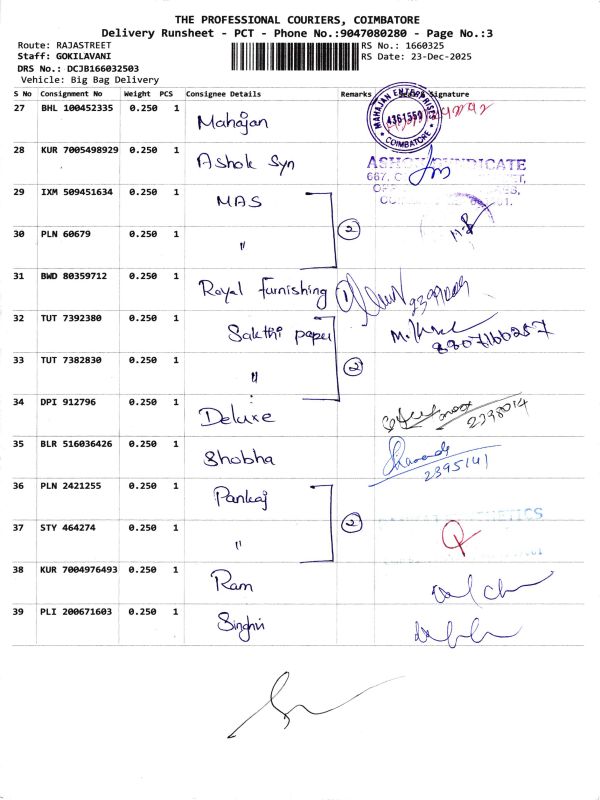 THE PROFESSIONAL COURIERS, COIMBATORE
Delivery Runsheet - PCT - Phone No.:9047080280 - Page No.:3
Route: RAJASTREET
RS No.: 1660325
Staff: GOKILAVANI
RS Date: 23-Dec-2025
DRS No.: DCJB166032503
Vehicle: Big Bag Delivery
S No Consignment No Weight PCS Consignee Details Remarks Signature
27 BHL 100452335 0.250 1 Mahajan
MAHAJAN ENTERPRISES
4361559
COIMBATORE
28 KUR 7005498929 0.250 1 Ashok Syn
ASHOK SYNDICATE
29 IXM 509451634 0.250 1 MAS
2
30 PLN 60679 0.250 1 "
31 BWD 80359712 0.250 1 Royal Furnishing 1
32 TUT 7392380 0.250 1 Sakthi paper
8807166257
2
33 TUT 7382830 0.250 1 "
34 DPI 912796 0.250 1 Deluxe
2398014
35 BLR 516036426 0.250 1 Shobha
2395141
36 PLN 2421255 0.250 1 Pankaj
2
37 STY 464274 0.250 1 "
38 KUR 7004976493 0.250 1 Ram
39 PLI 200671603 0.250 1 Singhvi